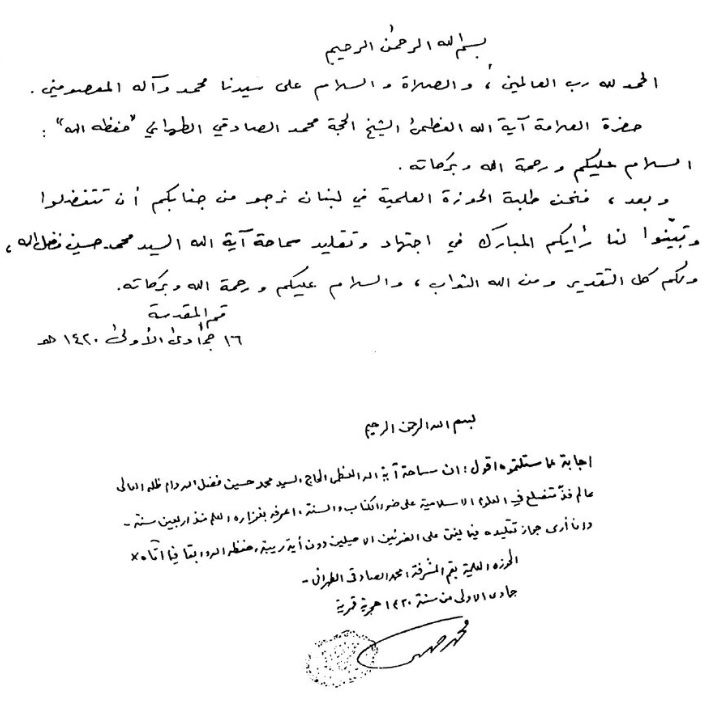 بسم الله الرحمن الرحيم
الحمد لله رب العالمين، والصلاة والسلام على سيدنا محمد وآله المعصومين.
حضرة العلامة آية الله العظمى الشيخ الحجة محمد الصادقي الطهراني "حفظه الله":
السلام عليكم ورحمة الله وبركاته.
وبعد، فنحن طلبة الحوزة العلمية في لبنان نرجو من جنابكم أن تتفضلوا
وتبيّنوا لنا رأيكم المبارك في اجتهاد وتقليد سماحة آية الله السيد محمد حسين فضل الله،
ولكم كل التقدير ومن الله الثواب، والسلام عليكم ورحمة الله وبركاته.
قم المقدسة
١٦ جمادى الأولى ١٤٢٠ هـ
بسم الله الرحمن الرحيم
اجابة عما سئلتموه اقول: ان سماحة آية الله العظمى الحاج السيد محمد حسين فضل الله دام ظله العالي
عالم فذ متضلع في العلوم الاسلامية على ضوء الكتاب والسنة، اعرفه بغزارة العلم منذ اربعين سنة -
وانا أرى جواز تقليده فيما يفتي على الاصيلين دون أية ريبة، حفظه الله وابقا
الحوزه العلمية بقم المشرفة محمد الصادقي الطهراني -
جمادى الاولى من سنة ١٤٢٠ هجرية قمرية